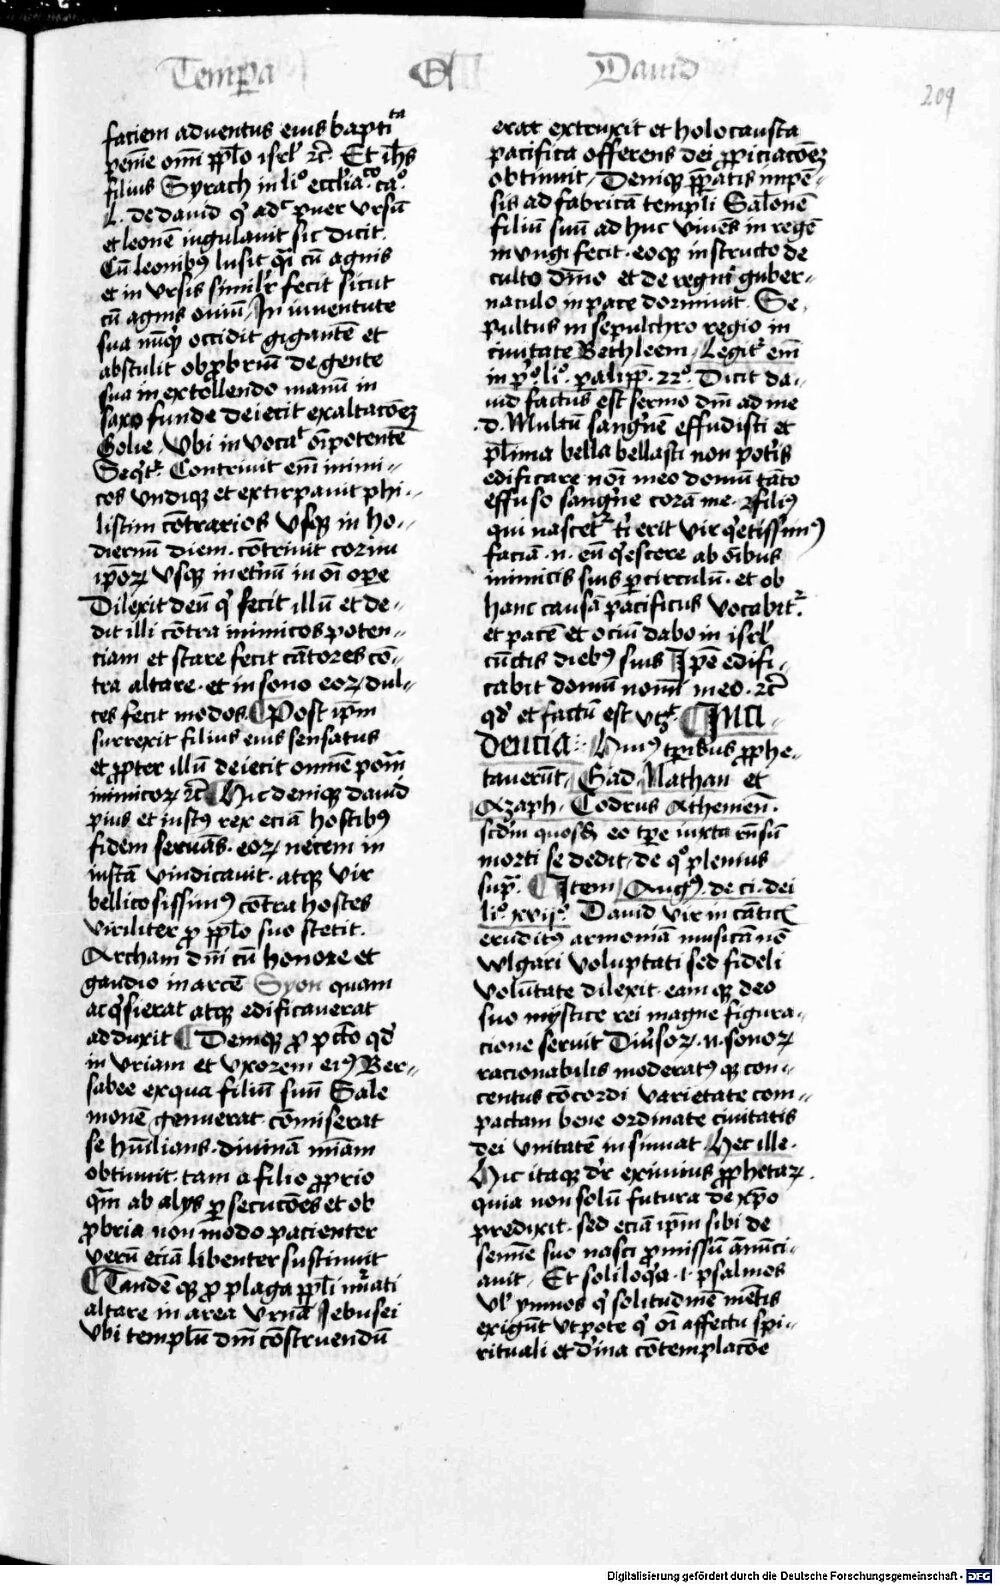 Tempa O David
209
faciem aduentus eius bapti ta
penie omi pplo isrl rc. Et ihs
filius Syrach in lio eccliaco cao.
L. de dauid q adc puer vrsu
et leone iugulauit sic dicit.
Cu leonibus lusit qi cu agnis
et in vrsis similr fecit sicut
cu agnis ouiu / In iuuentute
sua nuqd occidit gigante et
abstulit obpbriu de gente
sua in extollendo manu in
saxo funde deiecit exaltacoez
Golie / vbi in vocat oipotente
Seqtr Contriuit em inimi-
cos vndiqz et extirpauit phi-
listim contrarios vsqz in ho-
diernu diem. contriuit cornu
ipoz vsqz in etnu in oi ope
Dilexit deu q fecit illu et de-
dit illi contra inimicos poten-
ciam et stare fecit cantores co-
tra altare. et in sono eoz dul-
ces fecit modos. Post ipm
surrexit filius eius sensatus
et ppter illu deiecit omne poam
inimicoz rc Hic deniqz dauid
pius et iustus rex ecia hostibus
fidem seruas. eoz necem in
iusta vindicauit. atqz vir
bellicosissimus contra hostes
viriliter p pplo suo stetit.
Archam dni cu honore et
gaudio in arce Syon quam
acqsierat atqz edificauerat
adduxit Demeqz p pcto qd
in vriam et vxorem eius Ber-
sabee ex qua filiu suu Sale
mone genuerat comiserat
se humilians. diuina miam
obtinuit. tam a filio pprio
qm ab alys psecucoes et ob
pbria non modo pacienter
veru ecia libenter sustinuit
Tande qz p plaga ppli imati
altare in area vrna Iebusei
vbi templu dni construendu
erat extruxit et holocausta
pacifica offerens dei ppiciacoez
obtinuit / Deniqz ppatis impe-
sis ad fabrica templi Salone
filiu suu ad huc viues in rege
in vngi fecit. eoqz instructo de
cultu dino et de regni guber-
naculo in pace dormiuit. Se-
pultus in sepulchro regio in
ciuitate Bethleem / Legitr em
in po. lio. palipp. 22o. Dicit da-
uid factus est sermo dni ad me
d. Multu sangne effudisti et
plima bella bellasti non poteris
edificare noi meo domu tato
effuso sangne cora me. filius
qui nascetr ti erit vir qetissimus
facia .n. eu qescere ab oibus
inimicis suis pcirculu. et ob
hanc causa pacificus vocabitr.
et pace et ociu dabo in isrl
cuctis diebus suis Ipe edifi-
cabit domu nomi meo. rc
qd et factu est vtz. Inci-
dencia. Huius tpribus pphe-
tauerut / Gad Nathan et
Azaph. Codrus Athemen.
scdm quosd eo tpe iuxta rnsu
morti se dedit / de quo plenius
supra. Item / Augus. de ci. dei
lio. xvijo. Dauid vir in cantic
eruditus armonia musica no
wlgari voluptati sed fideli
volutate dilexit. eam qz deo
suo mystice rei magne figura-
cione seruit Diusoz .n. sonoz
racionabilis moderatus qz con-
centus concordi varietate com-
pactam bene ordinate ciuitatis
dei vnitate insinuat. Hec ille.
Hic itaqz dr eximius pphetaz.
quia non solu futura de xpo
predixit. sed ecia ipm sibi de
semine suo nasci pmissu anunci-
auit / Et soliloqa .i. psalmos
vl ymnos q solitudine metis
exigut vtpote q oi affectu spi-
rituali et diina contemplacoe